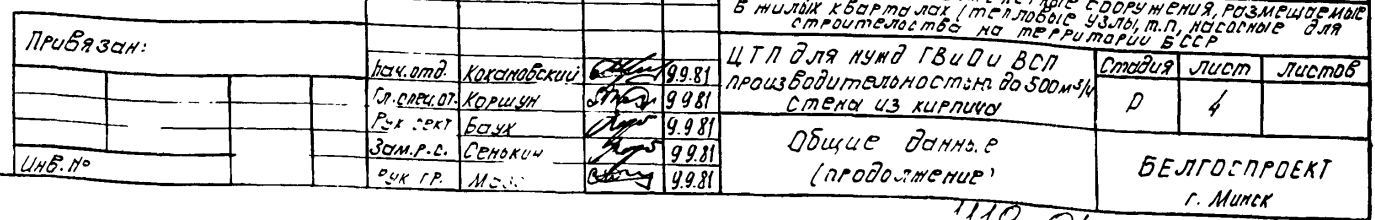 сооружения, размещаемые
в жилых кварталах (тепловые узлы, т.п, насосные для
строительства на территории БССР
Привязан:
Инв.№
Нач.отд. Кохановский 9.9.81
Гл.спец.от. Коршун 9.9.81
Рук сект Баух 9.9.81
Зам.р.с. Сенокич 9.9.81
Рук гр. 9.9.81
ЦТП для нужд ГВиОи ВСП
производительностью до 500м³/ч
стена из кирпича
Стадия Лист Листов
Р 4
Общие данные
(продолжение)
БЕЛГОСПРОЕКТ
г. Минск